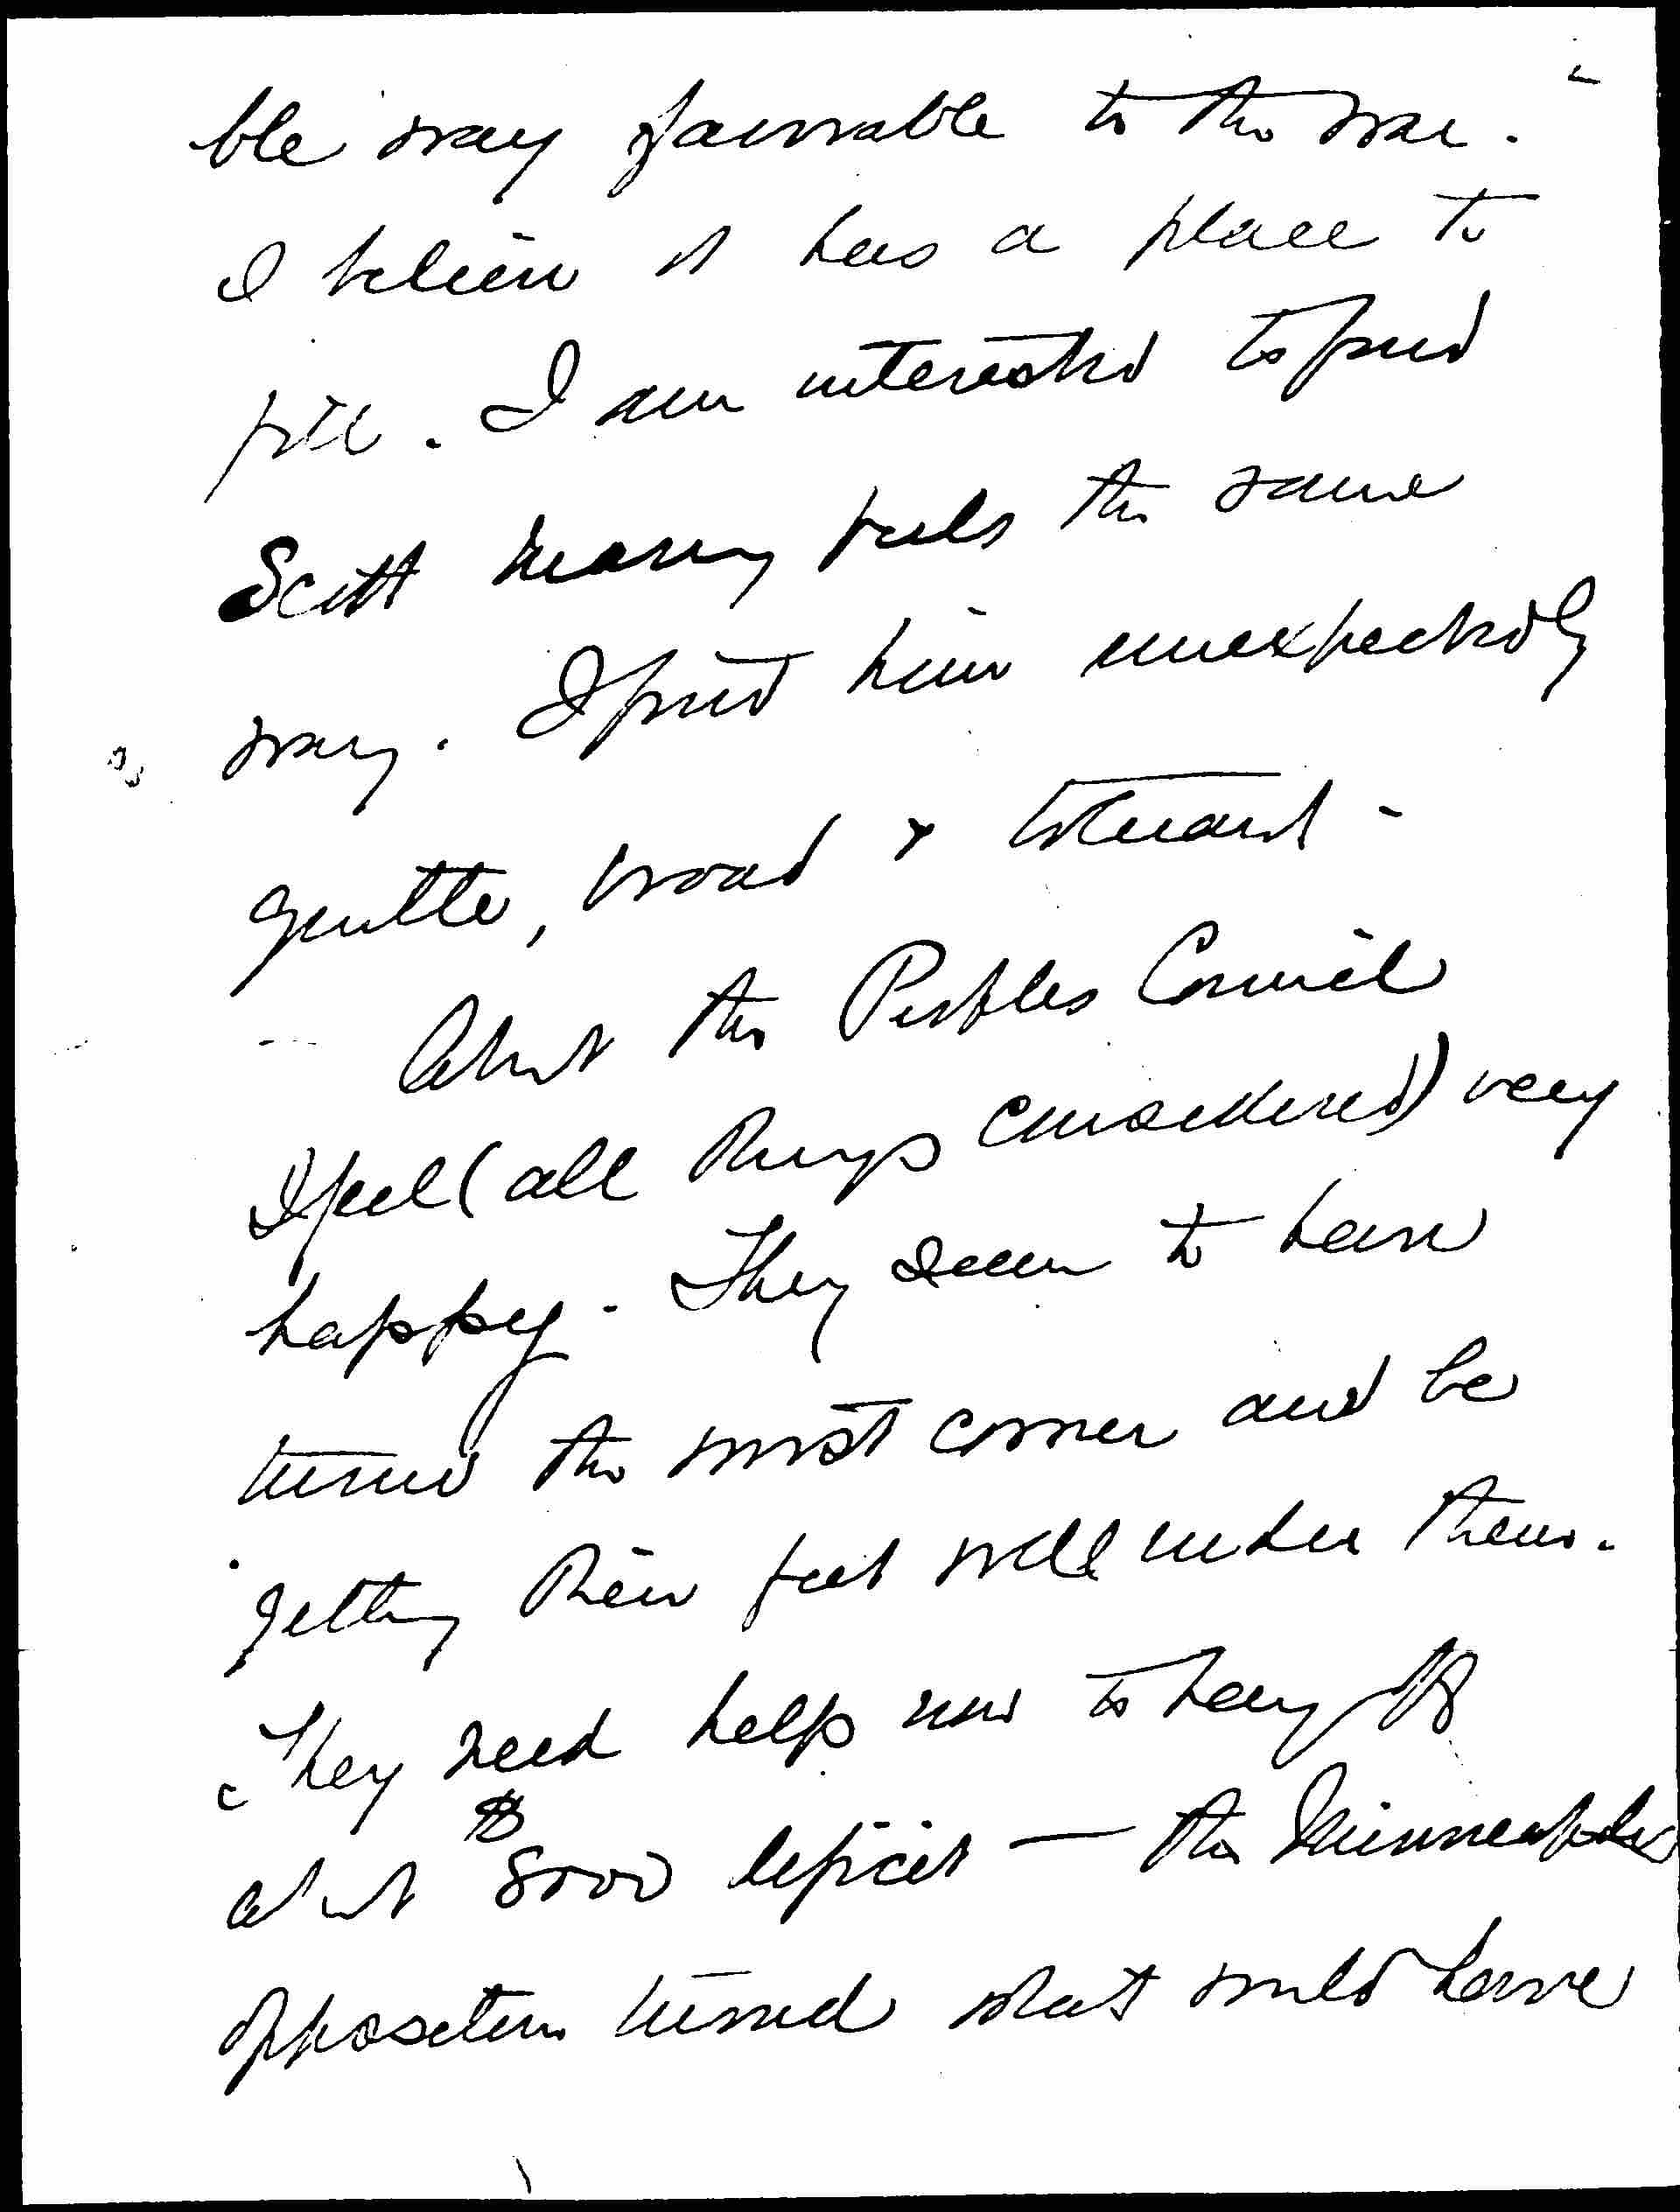 ble way favorable to the war.
I believe it has a place to
fill. I am interested to find
Scott Nearing feels the same
way. I find him unexpectedly
gentle, broad & tolerant -
About the Peoples Council
I feel (all things considered) very
happy. They seem to have
turned the worst corner and be
getting their feet well under them.
They need help now to pay off
about $8000 deficit — the Minneapolis
opposition turned what would have